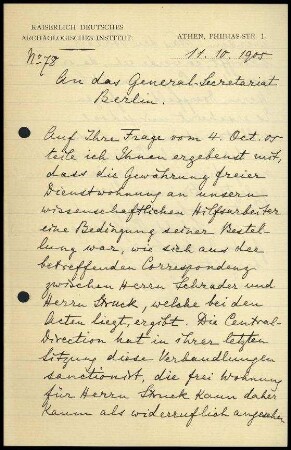 KAISERLICH DEUTSCHES
ARCHÄOLOGISCHES INSTITUT.
ATHEN, PHIDIAS-STR. 1.
No 78
11. 10. 1905
An das General-Secretariat
Berlin.
Auf Ihre Frage vom 4. Oct. 05
teile ich Ihnen ergebenst mit,
dass die Gewährung freier
Dienstwohnung an unsern
wissenschaftlichen Hilfsarbeiter
eine Bedingung seiner Bestel-
lung war, wie sich aus der
betreffenden Correspondenz
zwischen Herrn Schrader und
Herrn Struck, welche bei den
Acten liegt, ergibt. Die Central-
Direction hat in ihrer letzten
Sitzung diese Verhandlungen
sanctionirt, die freie Wohnung
für Herrn Struck kann daher
kaum als widerruflich angesehen